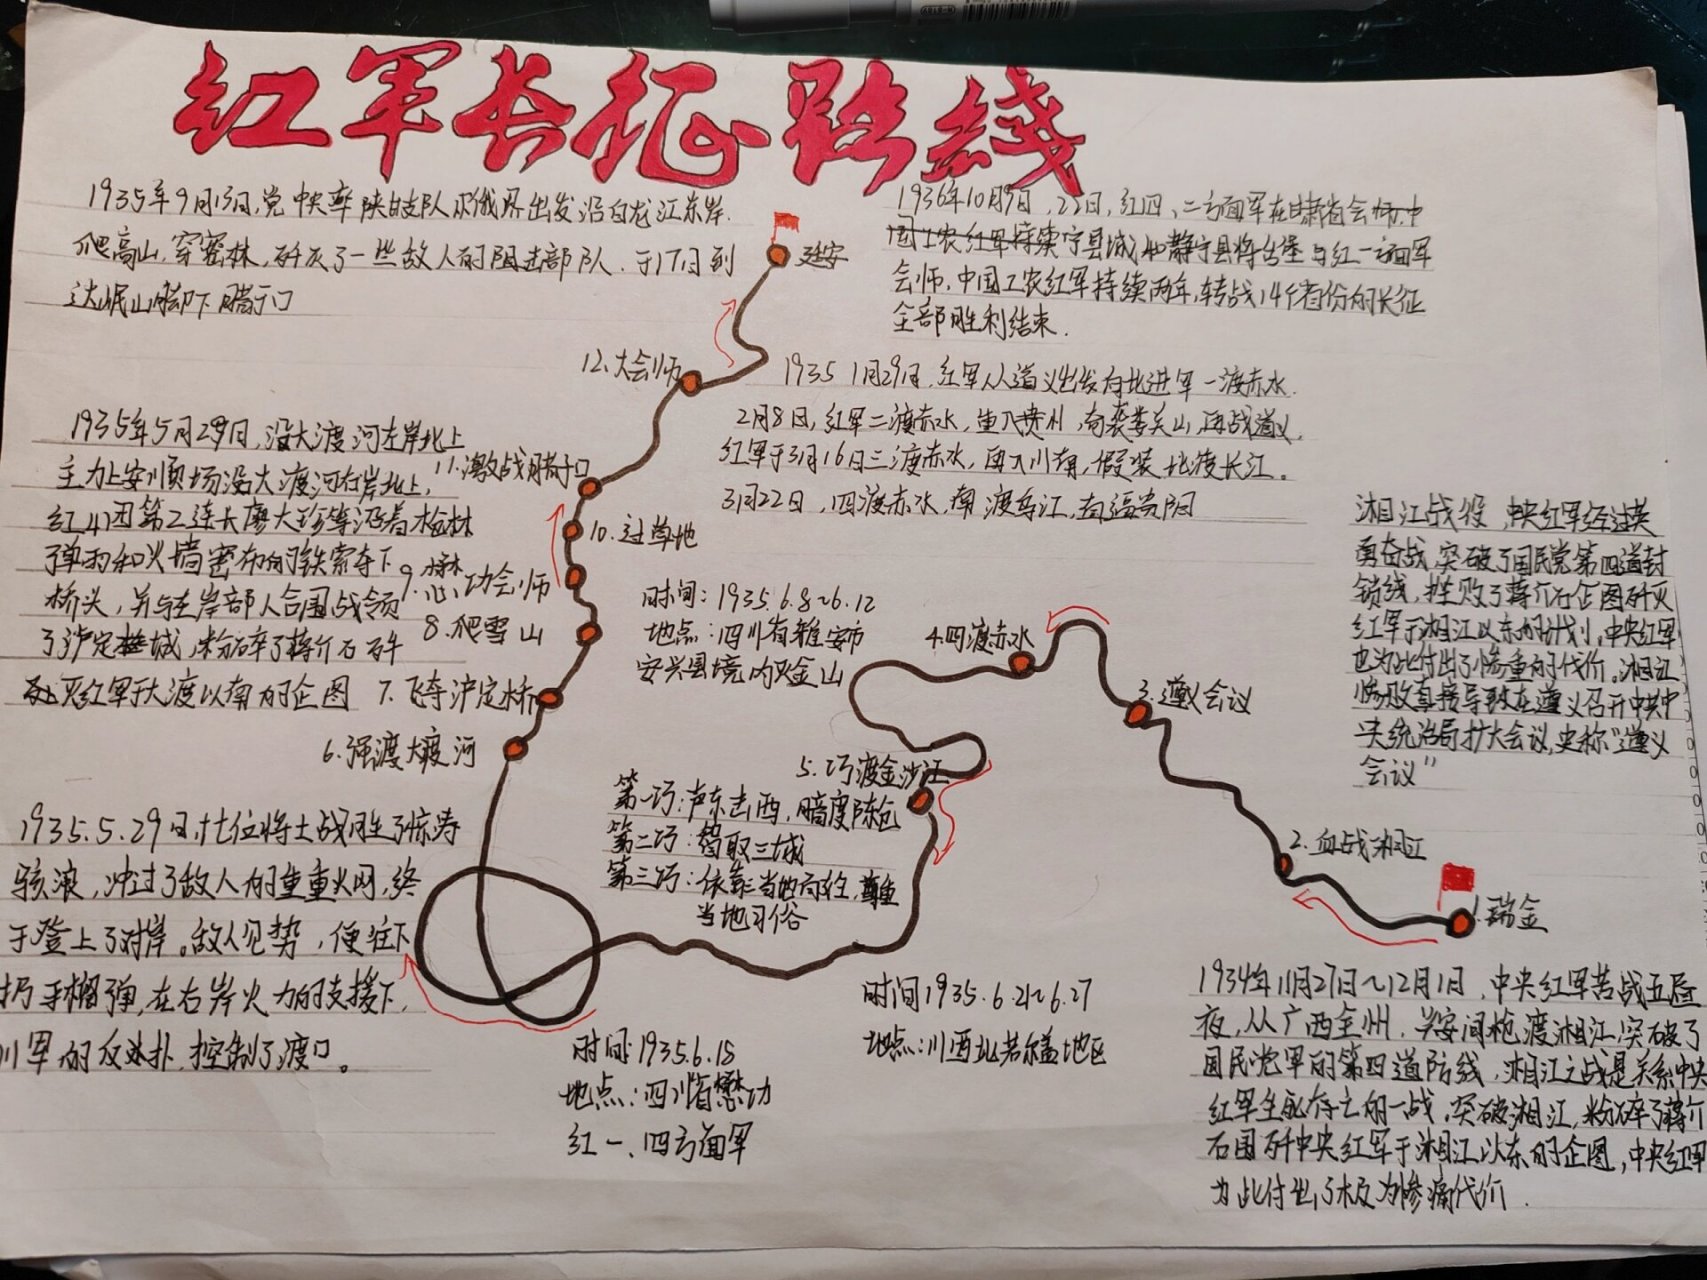 红军长征路线
1935年9月13日,党中央率陕甘支队从俄界出发沿白龙江东岸.
爬高山,穿密林,歼灭了一些敌人的阻击部队.于17日到
达岷山脚下腊子口
1936年10月9日,22日,红四、二方面军在甘肃省会
宁县城和静宁县将台堡与红一方面军
会师.中国工农红军持续两年,转战14个省份的长征
全部胜利结束.
延安
12.大会师
1935 1月29日,红军从遵义出发向北进军一渡赤水.
2月8日,红军二渡赤水,重入贵州,奇袭娄关山,再战遵义,
红军于3月16日三渡赤水,再入川南,假装北渡长江。
3月22日,四渡赤水,南渡乌江,直逼贵阳
1935年5月29日,沿大渡河左岸北上
主力上安顺场沿大渡河右岸北上,
红4团第2连长廖大珍等沿着枪林
弹雨和火墙密布的铁索夺下
桥头,并与左岸部人合围占领
了泸定城,粉碎了蒋介石歼
灭红军于大渡以南的企图
11.激战腊子口
10.过草地
9.懋功会师
8.爬雪山
7.飞夺泸定桥
6.强渡大渡河
时间:1935.6.8~6.12
地点:四川省雅安市
安兴县境内夹金山
4.四渡赤水
3.遵义会议
湘江战役,中央红军经过英
勇奋战,突破了国民党第四道封
锁线,挫败了蒋介石企图歼灭
红军于湘江以东的计划,中央红军
也为此付出了惨重的代价。湘江
惨败直接导致在遵义召开中共中
央统治局扩大会议,史称“遵义
会议”
5.巧渡金沙江
第一巧:声东击西,暗度陈仓
第二巧:智取三城
第三巧:依靠当地百姓,尊重
当地习俗
2.血战湘江
1.瑞金
1935.5.29日,十七位将士战胜了惊涛
骇浪,冲过了敌人的重重火网,终
于登上了对岸。敌人见势,便往下
扔手榴弹,在右岸火力的支援下,
川军的反扑,控制了渡口。
时间:1935.6.18
地点:四川省懋功
红一、四方面军
时间1935.6.21~6.27
地点:川西北若尔盖地区
1934年11月27日~12月1日,中央红军苦战五昼
夜,从广西全州、兴安间抢渡湘江,突破了
国民党军的第四道防线,湘江之战是关系中央
红军生死存亡的一战,突破湘江,粉碎了蒋介
石围歼中央红军于湘江以东的企图,中央红军
为此付出了极为惨痛代价.